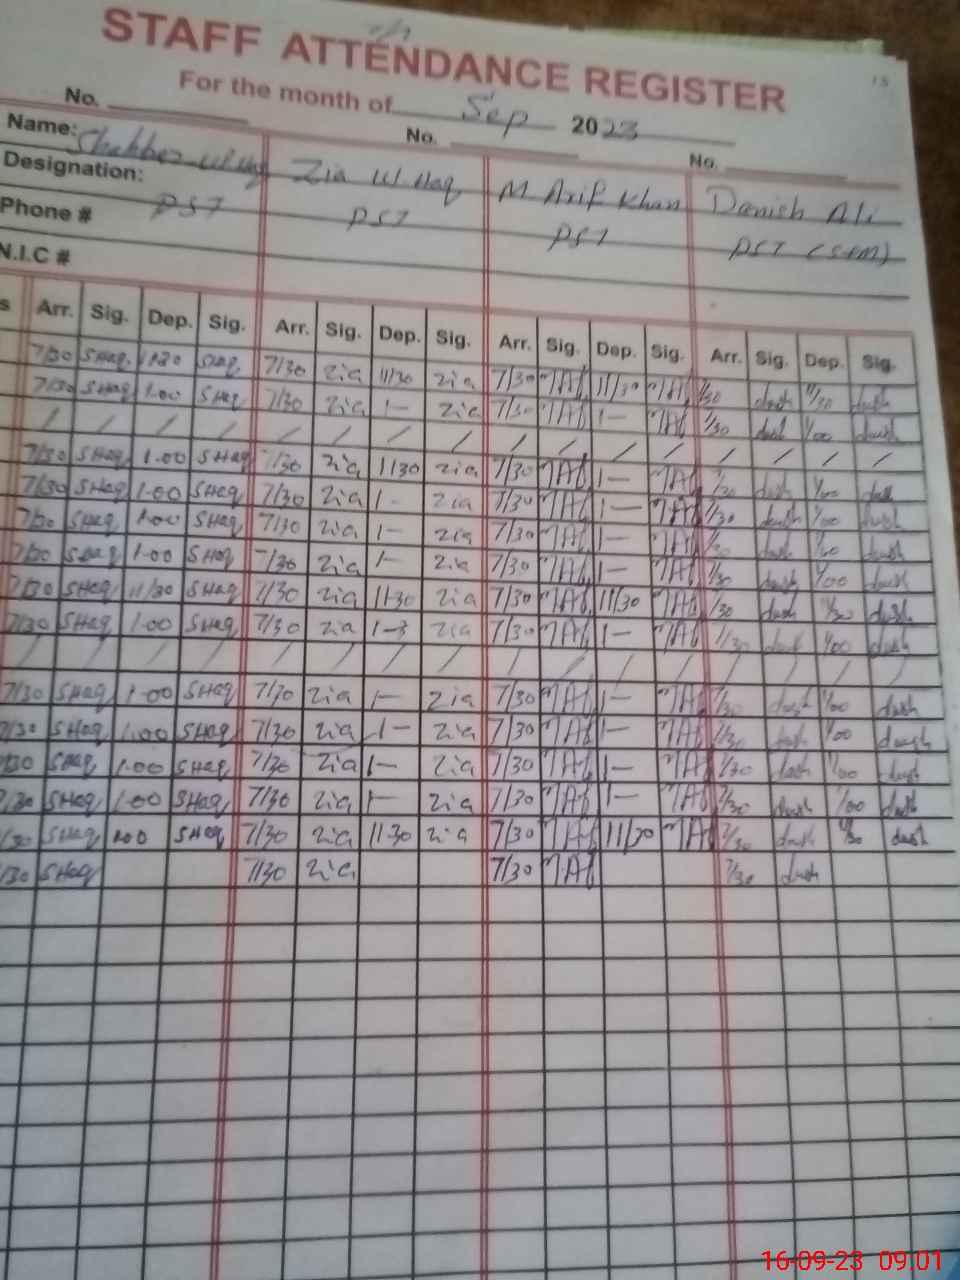 STAFF ATTENDANCE REGISTER
For the month of Sep 2023
15
No. No. No.
Name: Zia Ul Haq M Arif Khan Danish Ali
Designation: PST PST PST PST
Phone #
N.I.C #
s Arr. Sig. Dep. Sig. Arr. Sig. Dep. Sig. Arr. Sig. Dep. Sig. Arr. Sig. Dep. Sig.
7/30 SHaq SHaq 7/30 zia 11/30 zia 7/30 MAK 11/30 MAK 7/30 dash 11/30 dash
7/30 SHaq 1.00 SHaq 7/30 zia 1- zia 7/30 MAK 1- MAK 7/30 dash 1/00 dash
/ / / / / / / / / / / / / / / /
7/30 SHaq 1.00 SHaq 7/30 zia 1130 zia 7/30 MAK 1- MAK 7/30 dash 1/00 dash
7/30 SHaq 1.00 SHaq 7/30 zia 1- zia 7/30 MAK 1- MAK 7/30 dash 1/00 dash
7/30 SHaq 1.00 SHaq 7/30 zia 1- zia 7/30 MAK 1- MAK 7/30 dash 1/00 dash
7/30 SHaq 1.00 SHaq 7/30 zia 1- zia 7/30 MAK 1- MAK 7/30 dash 1/00 dash
7/30 SHaq 11/30 SHaq 7/30 zia 1130 zia 7/30 MAK 11/30 MAK 7/30 dash 11/30 dash
7/30 SHaq 1.00 SHaq 7/30 zia zia 7/30 MAK 1- MAK 7/30 dash 1/00 dash
/ / / / / / / / / / / / / / / /
7/30 SHaq 1.00 SHaq 7/30 zia 1- zia 7/30 MAK 1- MAK 7/30 dash 1/00 dash
7/30 SHaq 1.00 SHaq 7/30 zia 1- zia 7/30 MAK 1- MAK 7/30 dash 1/00 dash
7/30 SHaq 1.00 SHaq 7/30 zia 1- zia 7/30 MAK 1- MAK 7/30 dash 1/00 dash
7/30 SHaq 1.00 SHaq 7/30 zia 1- zia 7/30 MAK 1- MAK 7/30 dash 1/00 dash
7/30 SHaq SHaq 7/30 zia 11-30 zia 7/30 MAK 11/30 MAK 7/30 dash 11/30 dash
7/30 SHaq 7/30 zia 7/30 MAK 7/30 dash
16-09-23 09.01